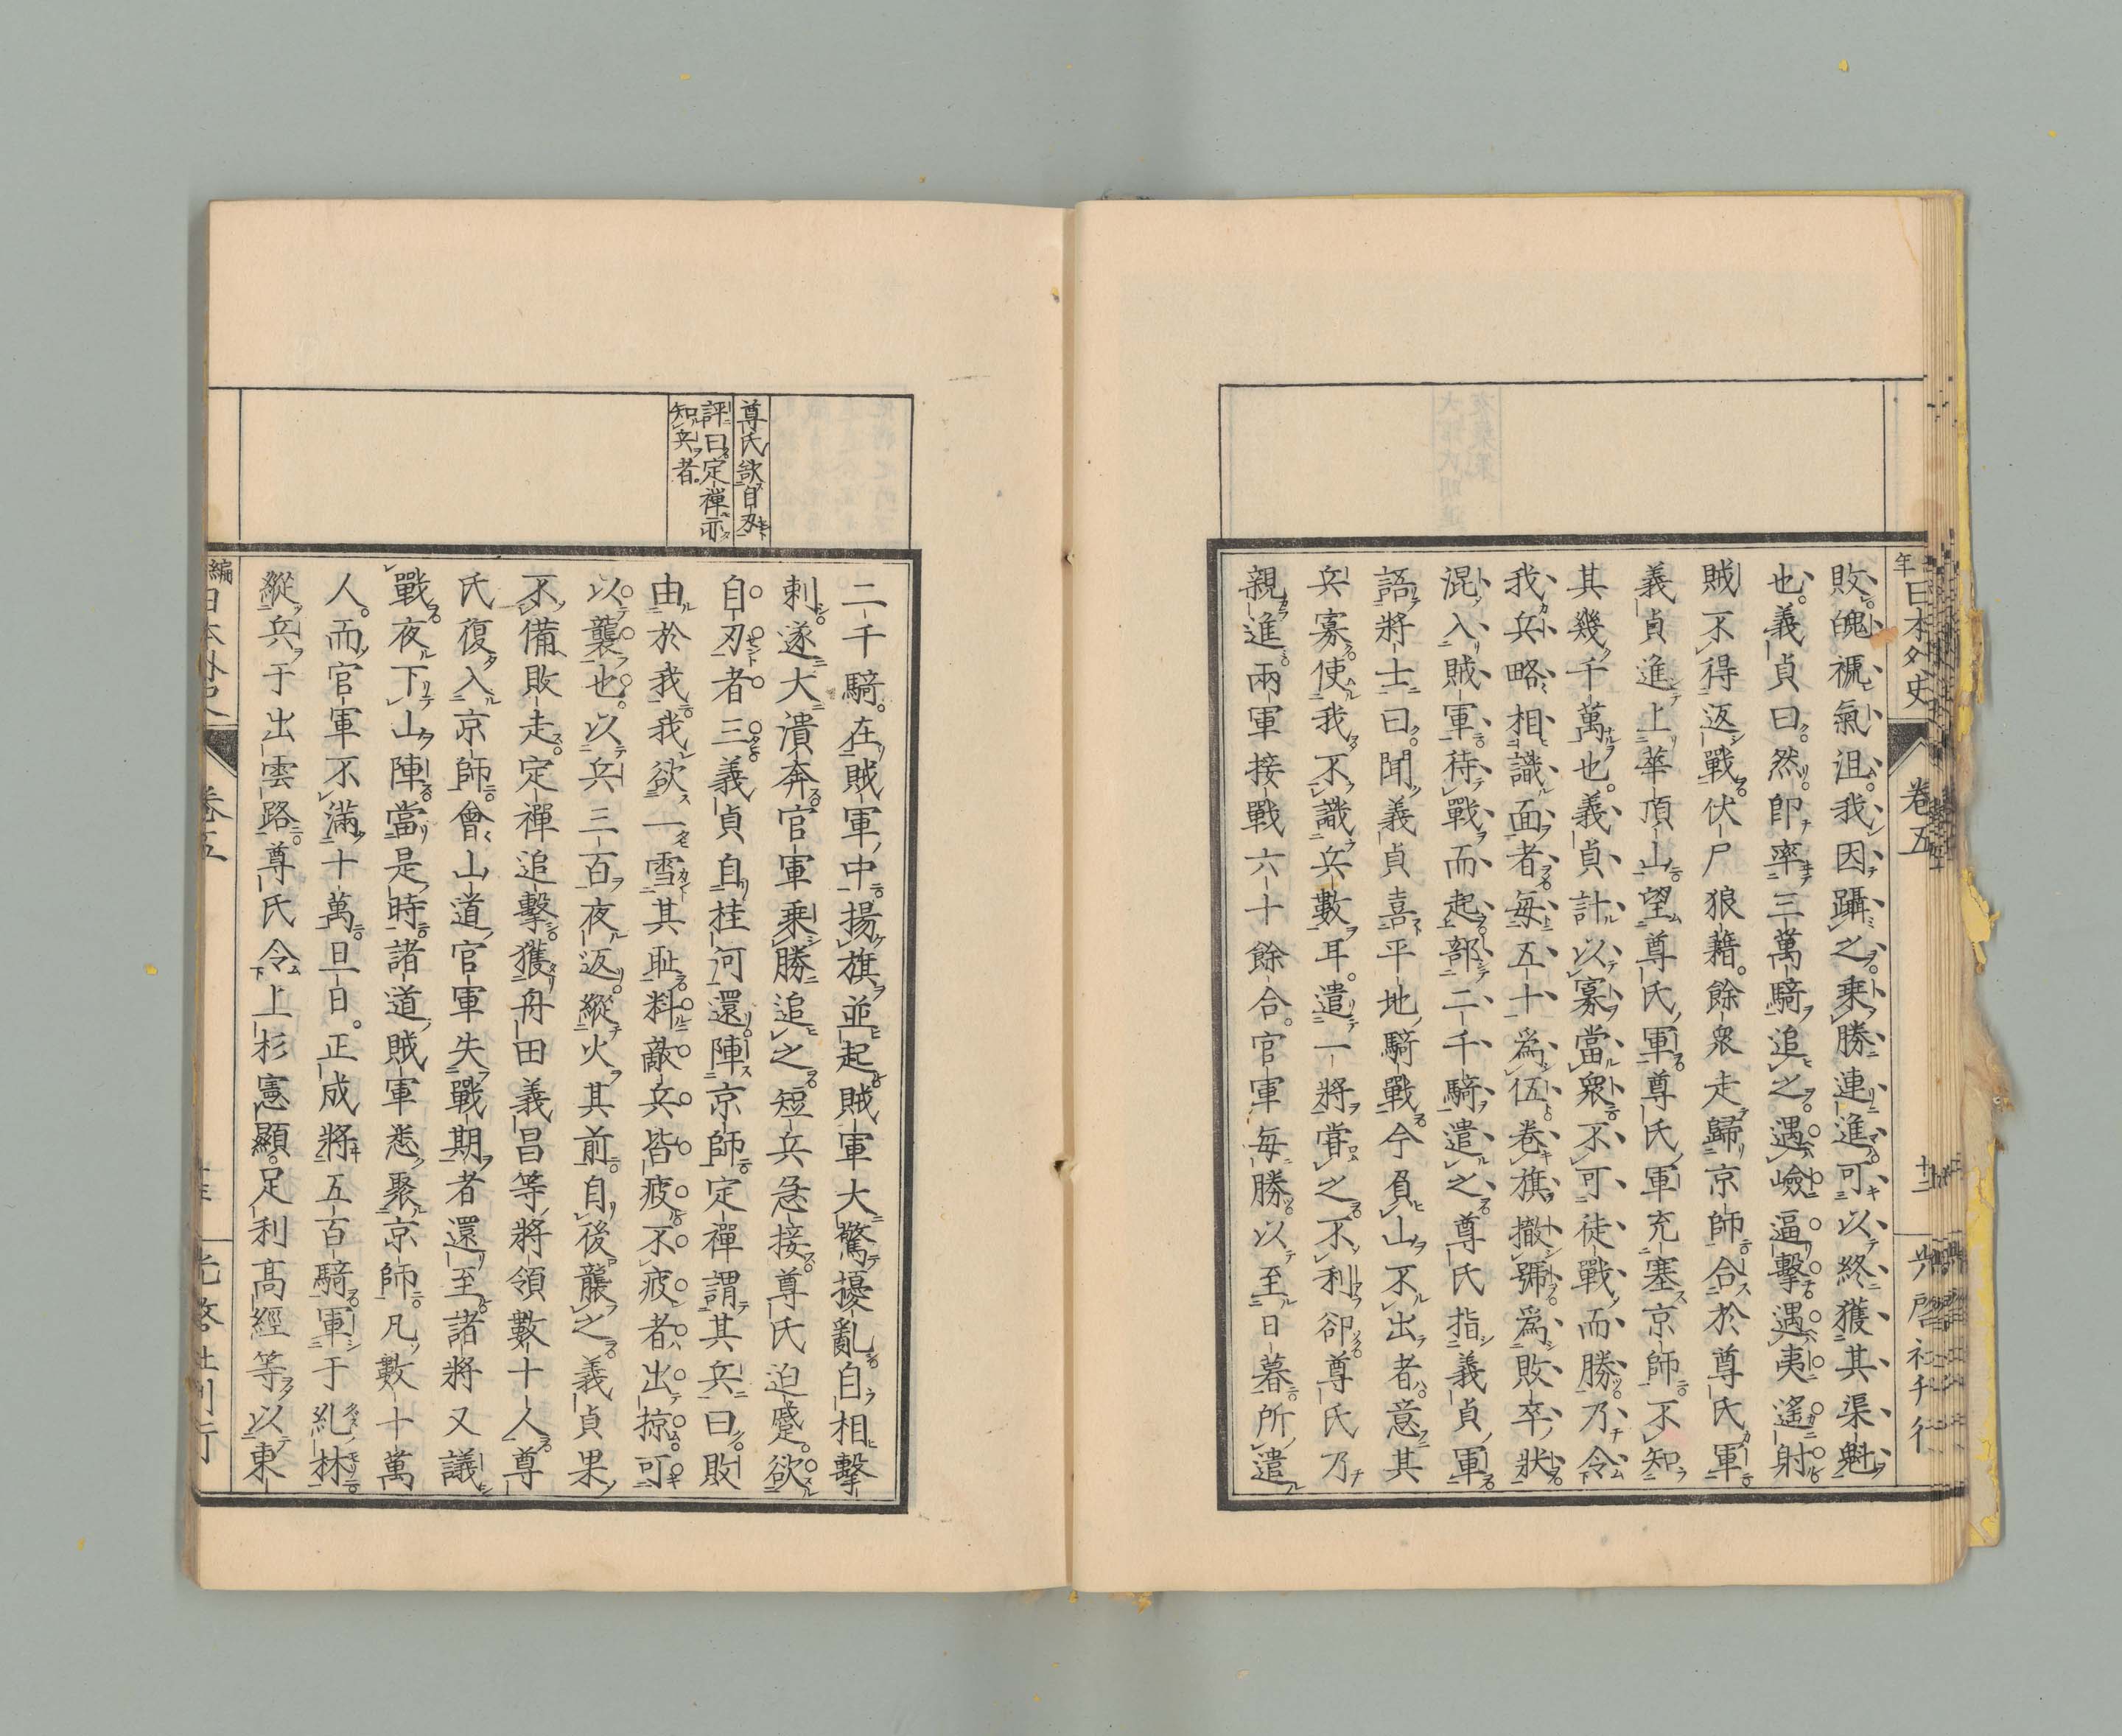 年日本外史 卷五 十二 光啓社刊行
敗魄褫氣沮。我因躡之。乘勝連進。可以終獲其渠魁
也。義貞曰。然。卽率三萬騎追之。遇嶮逼擊。遇夷遙射
賊不得返戰。伏尸狼藉。餘衆走歸京師。合於尊氏軍
義貞進上華頂山。望尊氏軍。尊氏軍充塞京師。不知
其幾千萬也。義貞計以寡當衆。不可徒戰而勝。乃令
我兵略相識面者。每五十爲伍。卷旗撤號。爲敗卒狀
混入賊軍。待戰而起。部二千騎遣之。尊氏指義貞軍
語將士曰。聞義貞喜平地騎戰。今負山不出者。意其
兵寡。使我不識兵數耳。遣一將嘗之。不利卻。尊氏乃
親進。兩軍接戰六十餘合。官軍每勝。以至日暮。所遣
二千騎。在賊軍中。揚旗並起。賊軍大驚擾亂。自相擊
刺。遂大潰奔。官軍乘勝追之。短兵急接。尊氏迫蹙。欲
自刃者三。義貞自桂河還。陣京師。定禪謂其兵曰。敗
由於我。我欲一雪其恥。料敵兵皆疲。不疲者出掠。可
以襲也。以兵三百夜返。縱火其前。自後襲之。義貞果
不備敗走。定禪追擊。獲舟田義昌等將領數十人。尊
氏復入京師。會山道官軍失戰期者還至。諸將又議
戰。夜下山陣。當是時。諸道賊軍悉聚京師。凡數十萬
人。而官軍不滿十萬。旦日。正成將五百騎。軍于糺林
縱兵于出雲路。尊氏令上杉憲顯。足利高經等。以東
尊氏欲自刃
評曰定禪亦
知兵者。
編日本外史 卷五 光啓社刊行